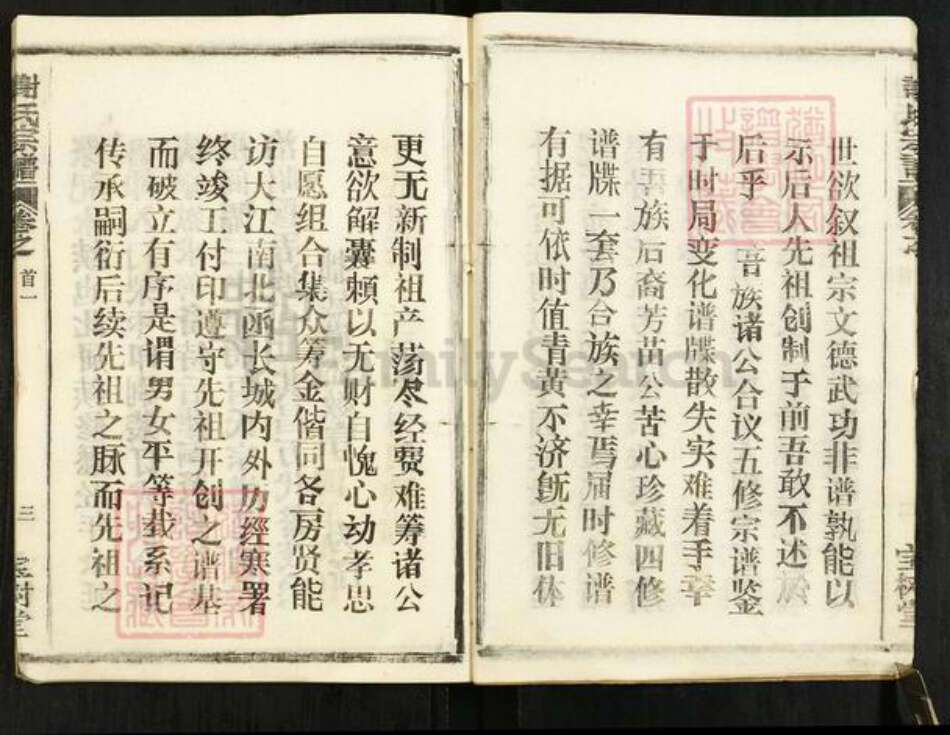 世欲叙祖宗文德武功非谱孰能以
示后人先祖创制于前吾敢不述於
后乎 吾族诸公合议五修宗谱鉴
于时局变化谱牒散失实难着手幸
有吾族后裔芳苗公苦心珍藏四修
谱牒一套乃合族之幸焉届时修谱
有据可依时值青黄不济既无旧体
更无新制祖产荡尽经费难筹诸公
意欲解囊赖以无财自愧心动孝思
自愿组合集众筹金偕同各房贤能
访大江南北函长城内外历經寒署
终竣工付印遵守先祖开创之谱基
而破立有序是谓男女平等载系记
传承嗣衍后续先祖之脉而先祖之
謝氏宗譜 卷之首一
三 宝树堂
FamilySearch